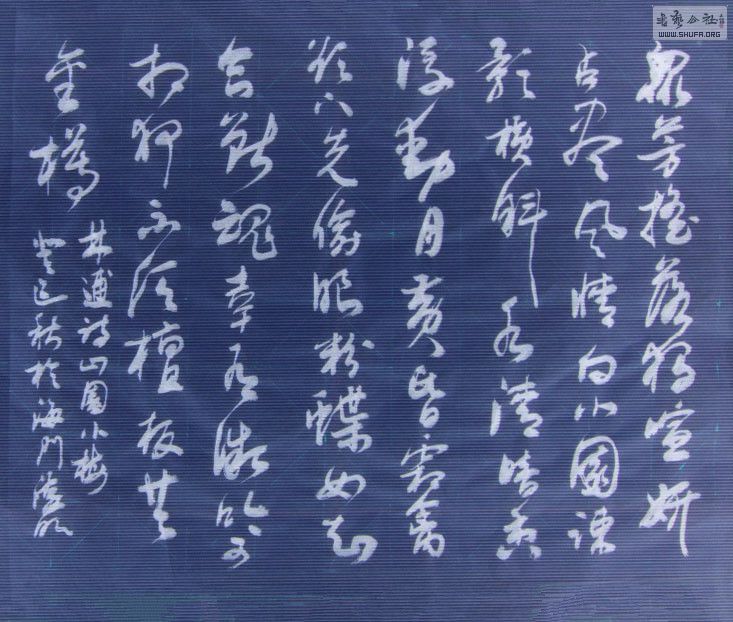 眾芳搖落獨喧妍
占盡風情向小園疎
影橫斜水清暗香
浮動月黃昏霜禽
欲下先偷眼粉蝶如知
合斷魂幸有微吟可
相狎不須檀板共
金樽
林逋詩山園小梅
癸巳秋於海門
书艺公社
WWW.SHUFA.ORG